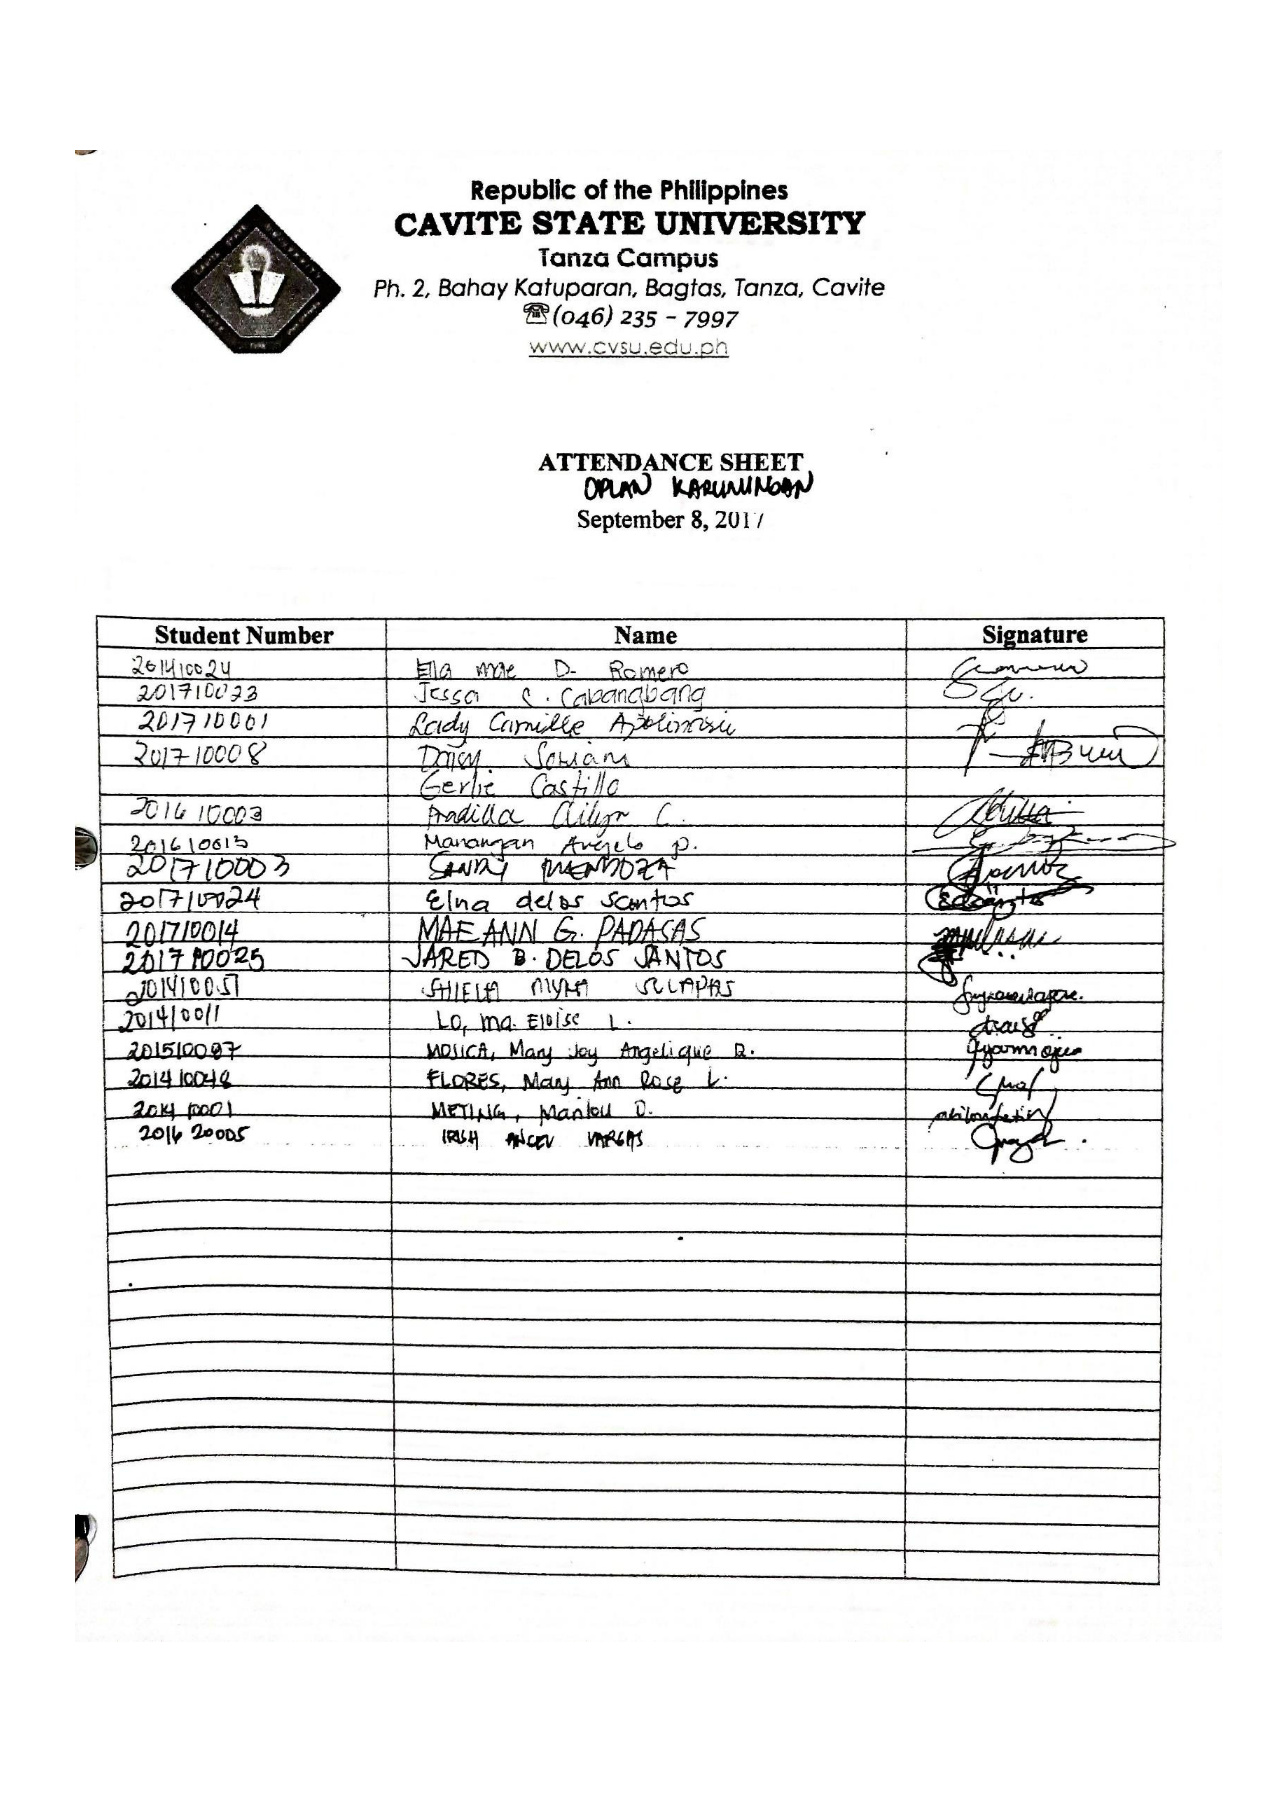 Republic of the Philippines
CAVITE STATE UNIVERSITY
Tanza Campus
Ph. 2, Bahay Katuparan, Bagtas, Tanza, Cavite
☎(046) 235 - 7997
www.cvsu.edu.ph
ATTENDANCE SHEET
OPLAN KARUNUNGAN
September 8, 2017
Student Number Name Signature
201410024 Ella mae D. Romero
201710023 Jessa C. Cabangbang
201710001 Lady Camille Apolinario
201710008 Daisy Soriano
Gerlie Castillo
201610003 Pradilla Ailyn C.
201610013 Manangan Angelo P.
201710003 SANDY MENDOZA
201710024 Elna delos Santos
201710014 MAE ANN G. PADASAS
201710025 JARED B. DELOS SANTOS
201410051 SHIELA MYRA
201410011 Lo, Ma. Eloise L.
201510087 MOJICA, Mary Joy Angelique R.
201410048 FLORES, Mary Ann Rose L.
201410001 METING, Marilou D.
201620005 IRISH VARGAS